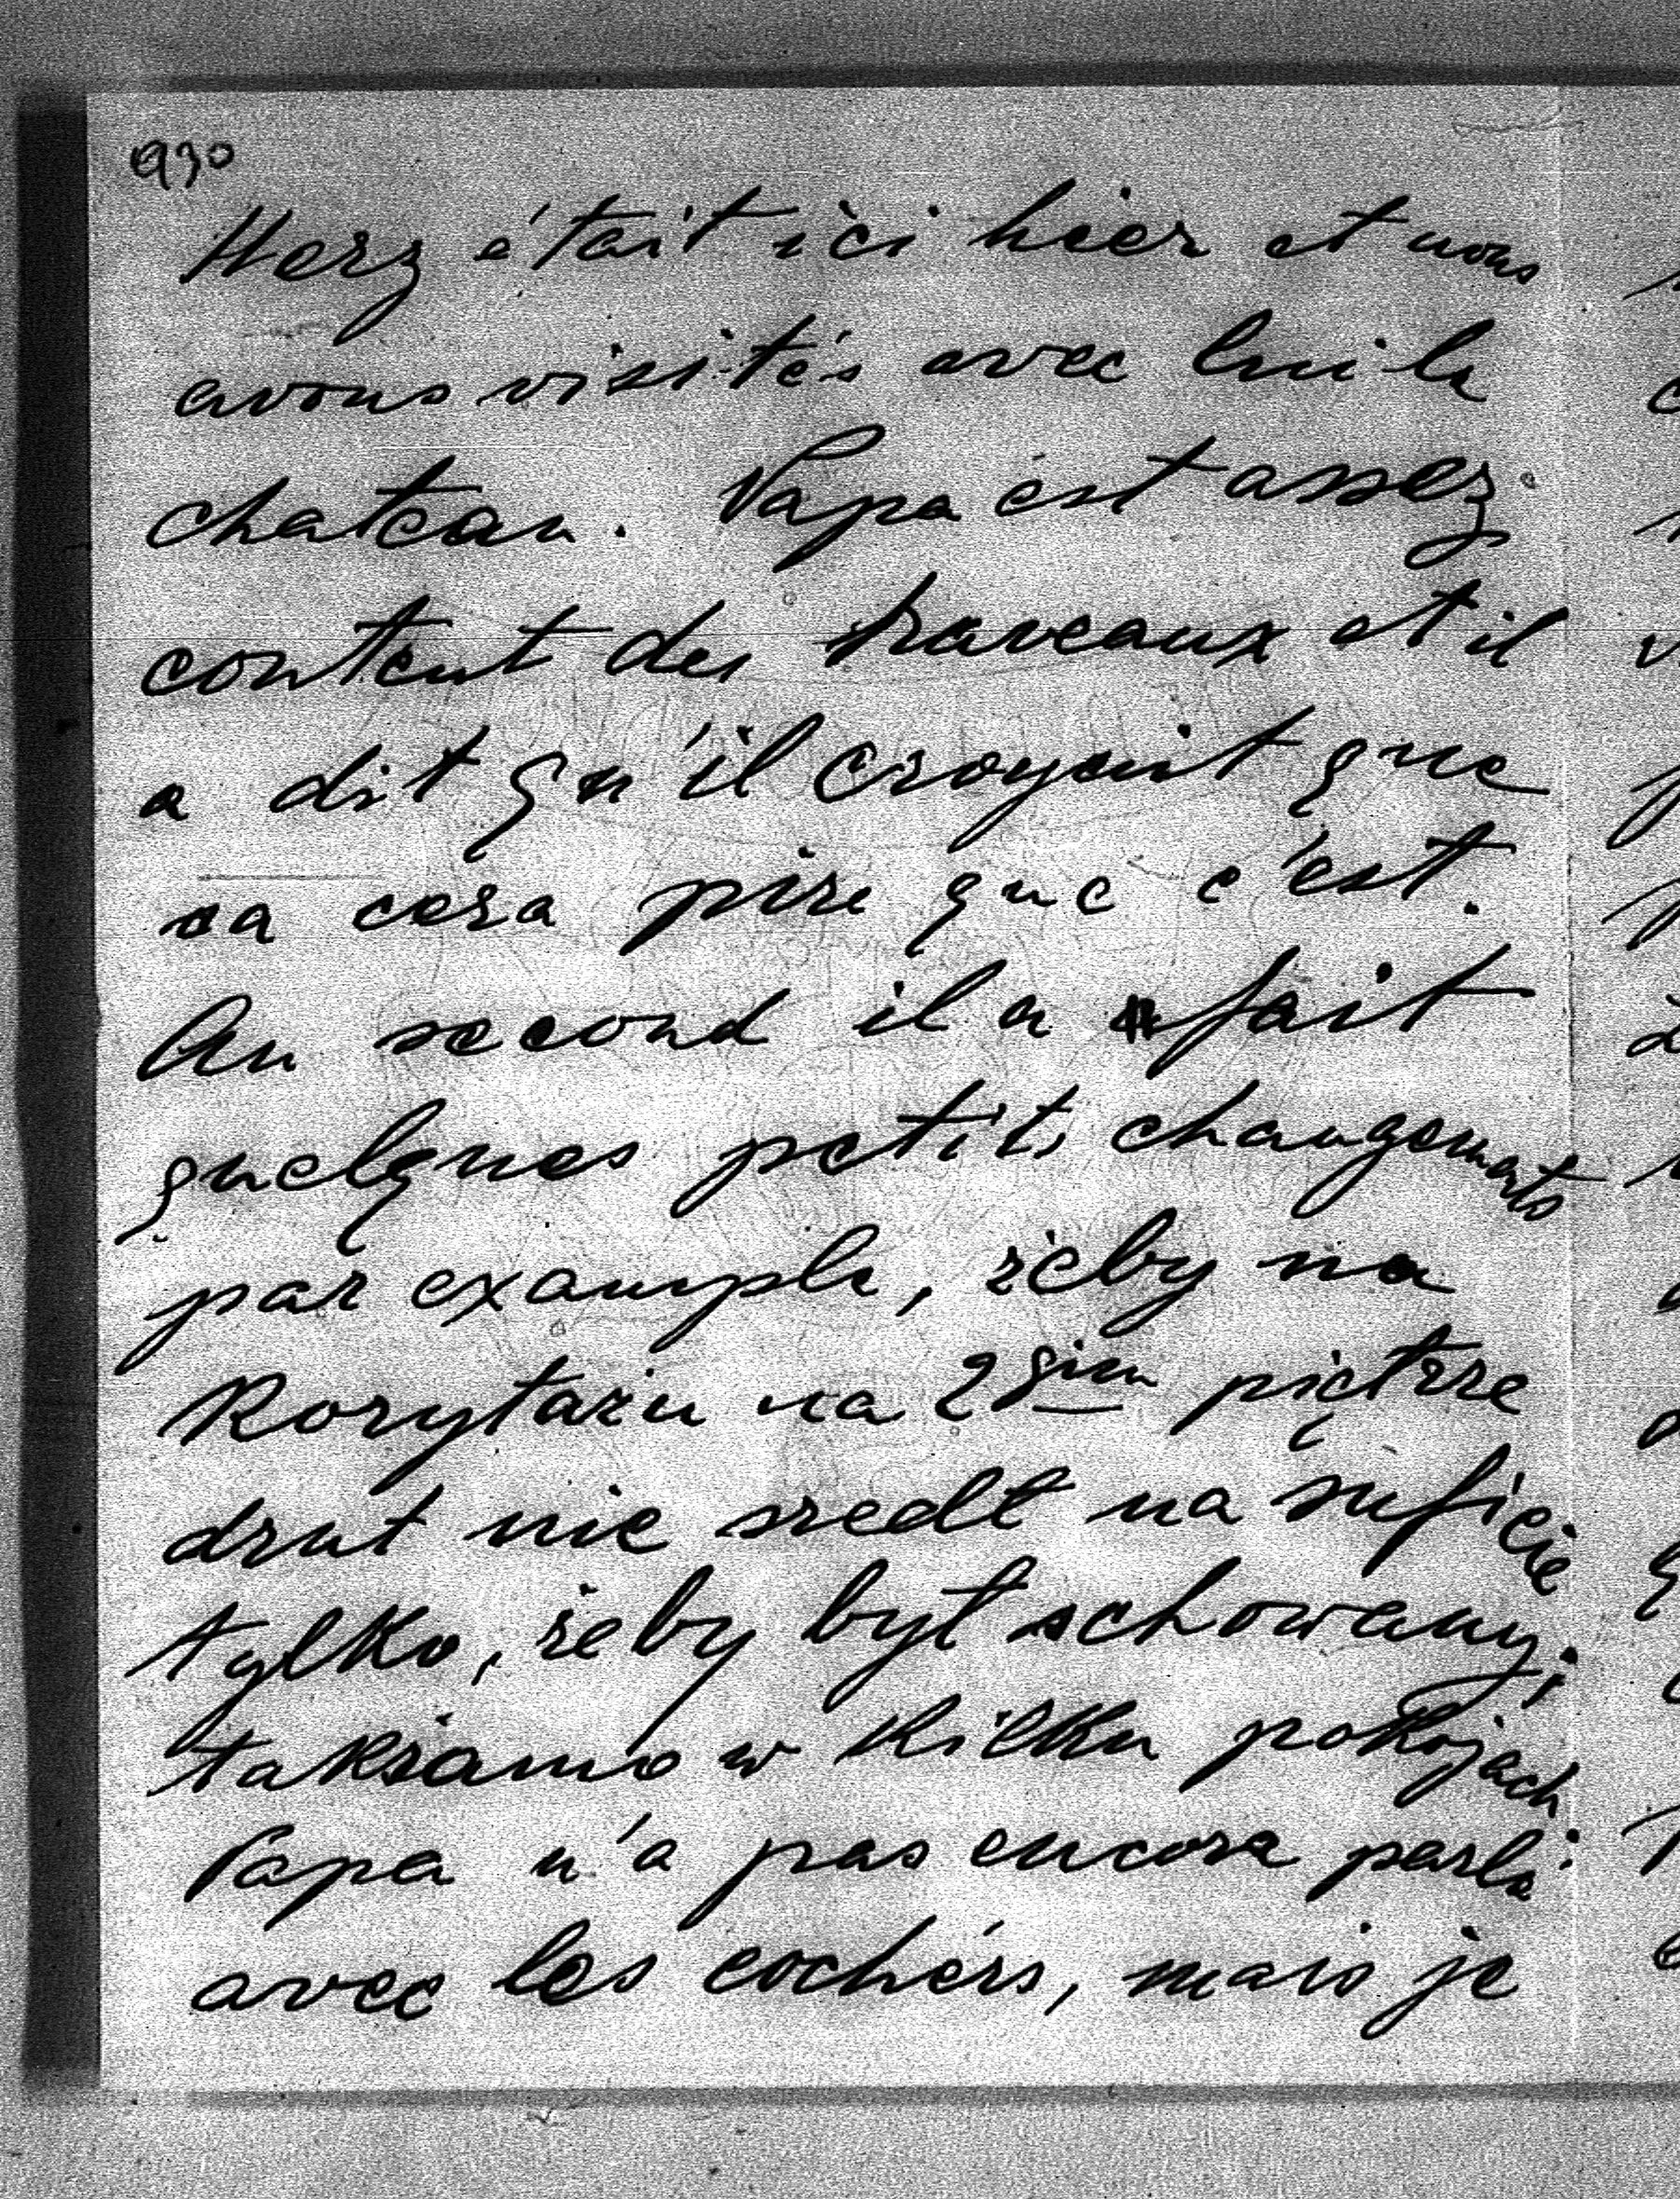 930
Herz était ici hier et nous
avons visités avec lui le
chateau. Papa est assez
content des traveaux et il
a dit qu'il croyait que
ca cera pire que c'est.
Au second il a fait
quelques petits changements
par example, żeby na
Korytażu na 2giem piętrze
drut nie szedł na suficie
tylko, żeby był schowany;
taksamo w kilku pokojach.
Papa n'a pas encore parle
avec les cochérs, mais je